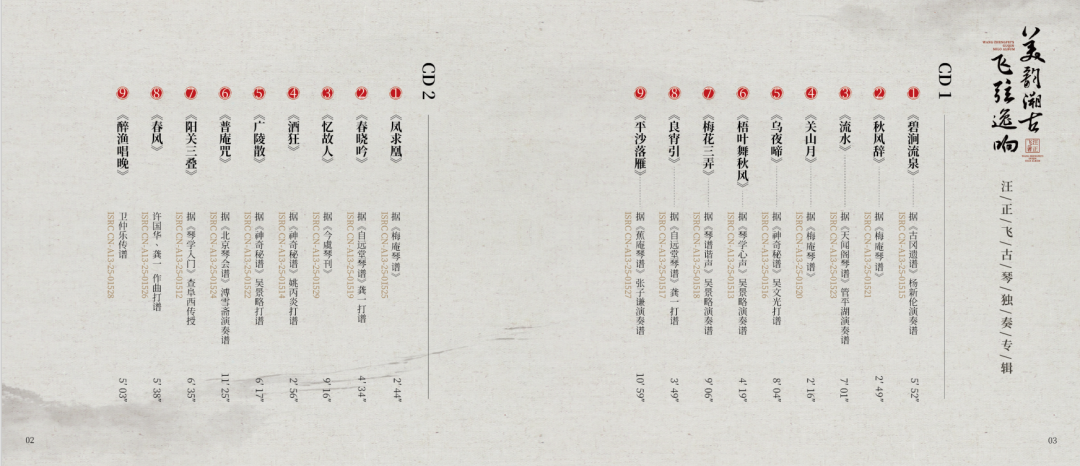 美韵溯古
飞弦逸响
汪/正/飞/古/琴/独/奏/专/辑
CD 1
1 《碧涧流泉》 据《古冈遗谱》杨新伦演奏谱 5′ 52″
ISRC CN-A13-25-01515
2 《秋风辞》 据《梅庵琴谱》 2′ 49″
ISRC CN-A13-25-01521
3 《流水》 据《天闻阁琴谱》管平湖演奏谱 7′ 01″
ISRC CN-A13-25-01523
4 《关山月》 据《梅庵琴谱》 2′ 16″
ISRC CN-A13-25-01520
5 《乌夜啼》 据《神奇秘谱》吴文光打谱 8′ 04″
ISRC CN-A13-25-01516
6 《梧叶舞秋风》 据《琴学心声》吴景略演奏谱 4′ 19″
ISRC CN-A13-25-01513
7 《梅花三弄》 据《琴谱谐声》吴景略演奏谱 9′ 06″
ISRC CN-A13-25-01518
8 《良宵引》 据《自远堂琴谱》龚一打谱 3′ 49″
ISRC CN-A13-25-01517
9 《平沙落雁》 据《蕉庵琴谱》张子谦演奏谱 10′ 59″
ISRC CN-A13-25-01527
CD 2
1 《凤求凰》 据《梅庵琴谱》 2′ 44″
ISRC CN-A13-25-01525
2 《春晓吟》 据《自远堂琴谱》龚一打谱 4′ 34″
ISRC CN-A13-25-01519
3 《忆故人》 据《今虞琴刊》 9′ 16″
ISRC CN-A13-25-01529
4 《酒狂》 据《神奇秘谱》姚丙炎打谱 2′ 56″
ISRC CN-A13-25-01514
5 《广陵散》 据《神奇秘谱》吴景略打谱 6′ 17″
ISRC CN-A13-25-01522
6 《普庵咒》 据《北京琴会谱》溥雪斋演奏谱 11′ 25″
ISRC CN-A13-25-01524
7 《阳关三叠》 据《琴学入门》查阜西传授 6′ 35″
ISRC CN-A13-25-01512
8 《春风》 许国华、龚一 作曲打谱 5′ 38″
ISRC CN-A13-25-01526
9 《醉渔唱晚》 卫仲乐传谱 5′ 03″
ISRC CN-A13-25-01528
02
03